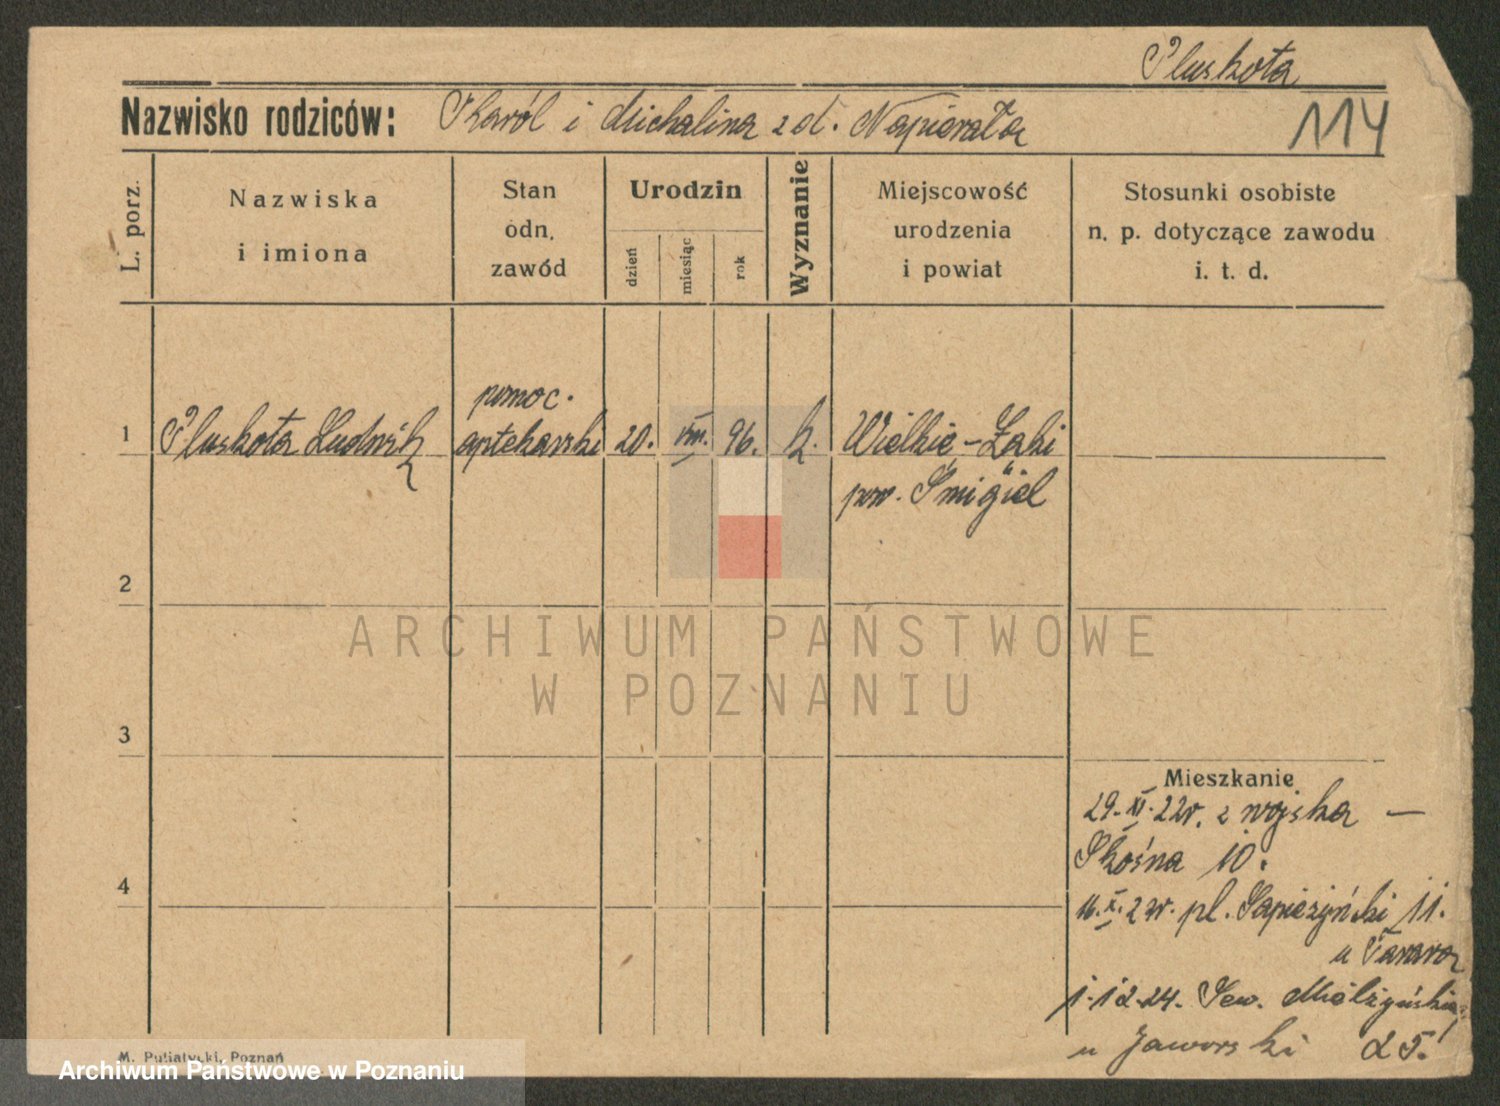 Pluskota
Nazwisko rodziców: Karól i Michalina z d. Napierała
114
L. porz.
Nazwiska
i imiona
Stan
odn.
zawód
Urodzin
dzień
miesiąc
rok
Wyznanie
Miejscowość
urodzenia
i powiat
Stosunki osobiste
n. p. dotyczące zawodu
i. t. d.
pomoc.
1 Pluskota Ludwik aptekarski 20. VIII. 96. k. Wielkie-Łąki
pow. Śmigiel
2
ARCHIWUM PAŃSTWOWE
W POZNANIU
3
Mieszkanie
29. XI. 22r. z wojska —
Skośna 10.
4
pl. Sapieżyński 11.
u
1-12-24. Sew. Mielżyńskiego
u Jaworski 25.
M. Putiatycki, Poznań
Archiwum Państwowe w Poznaniu